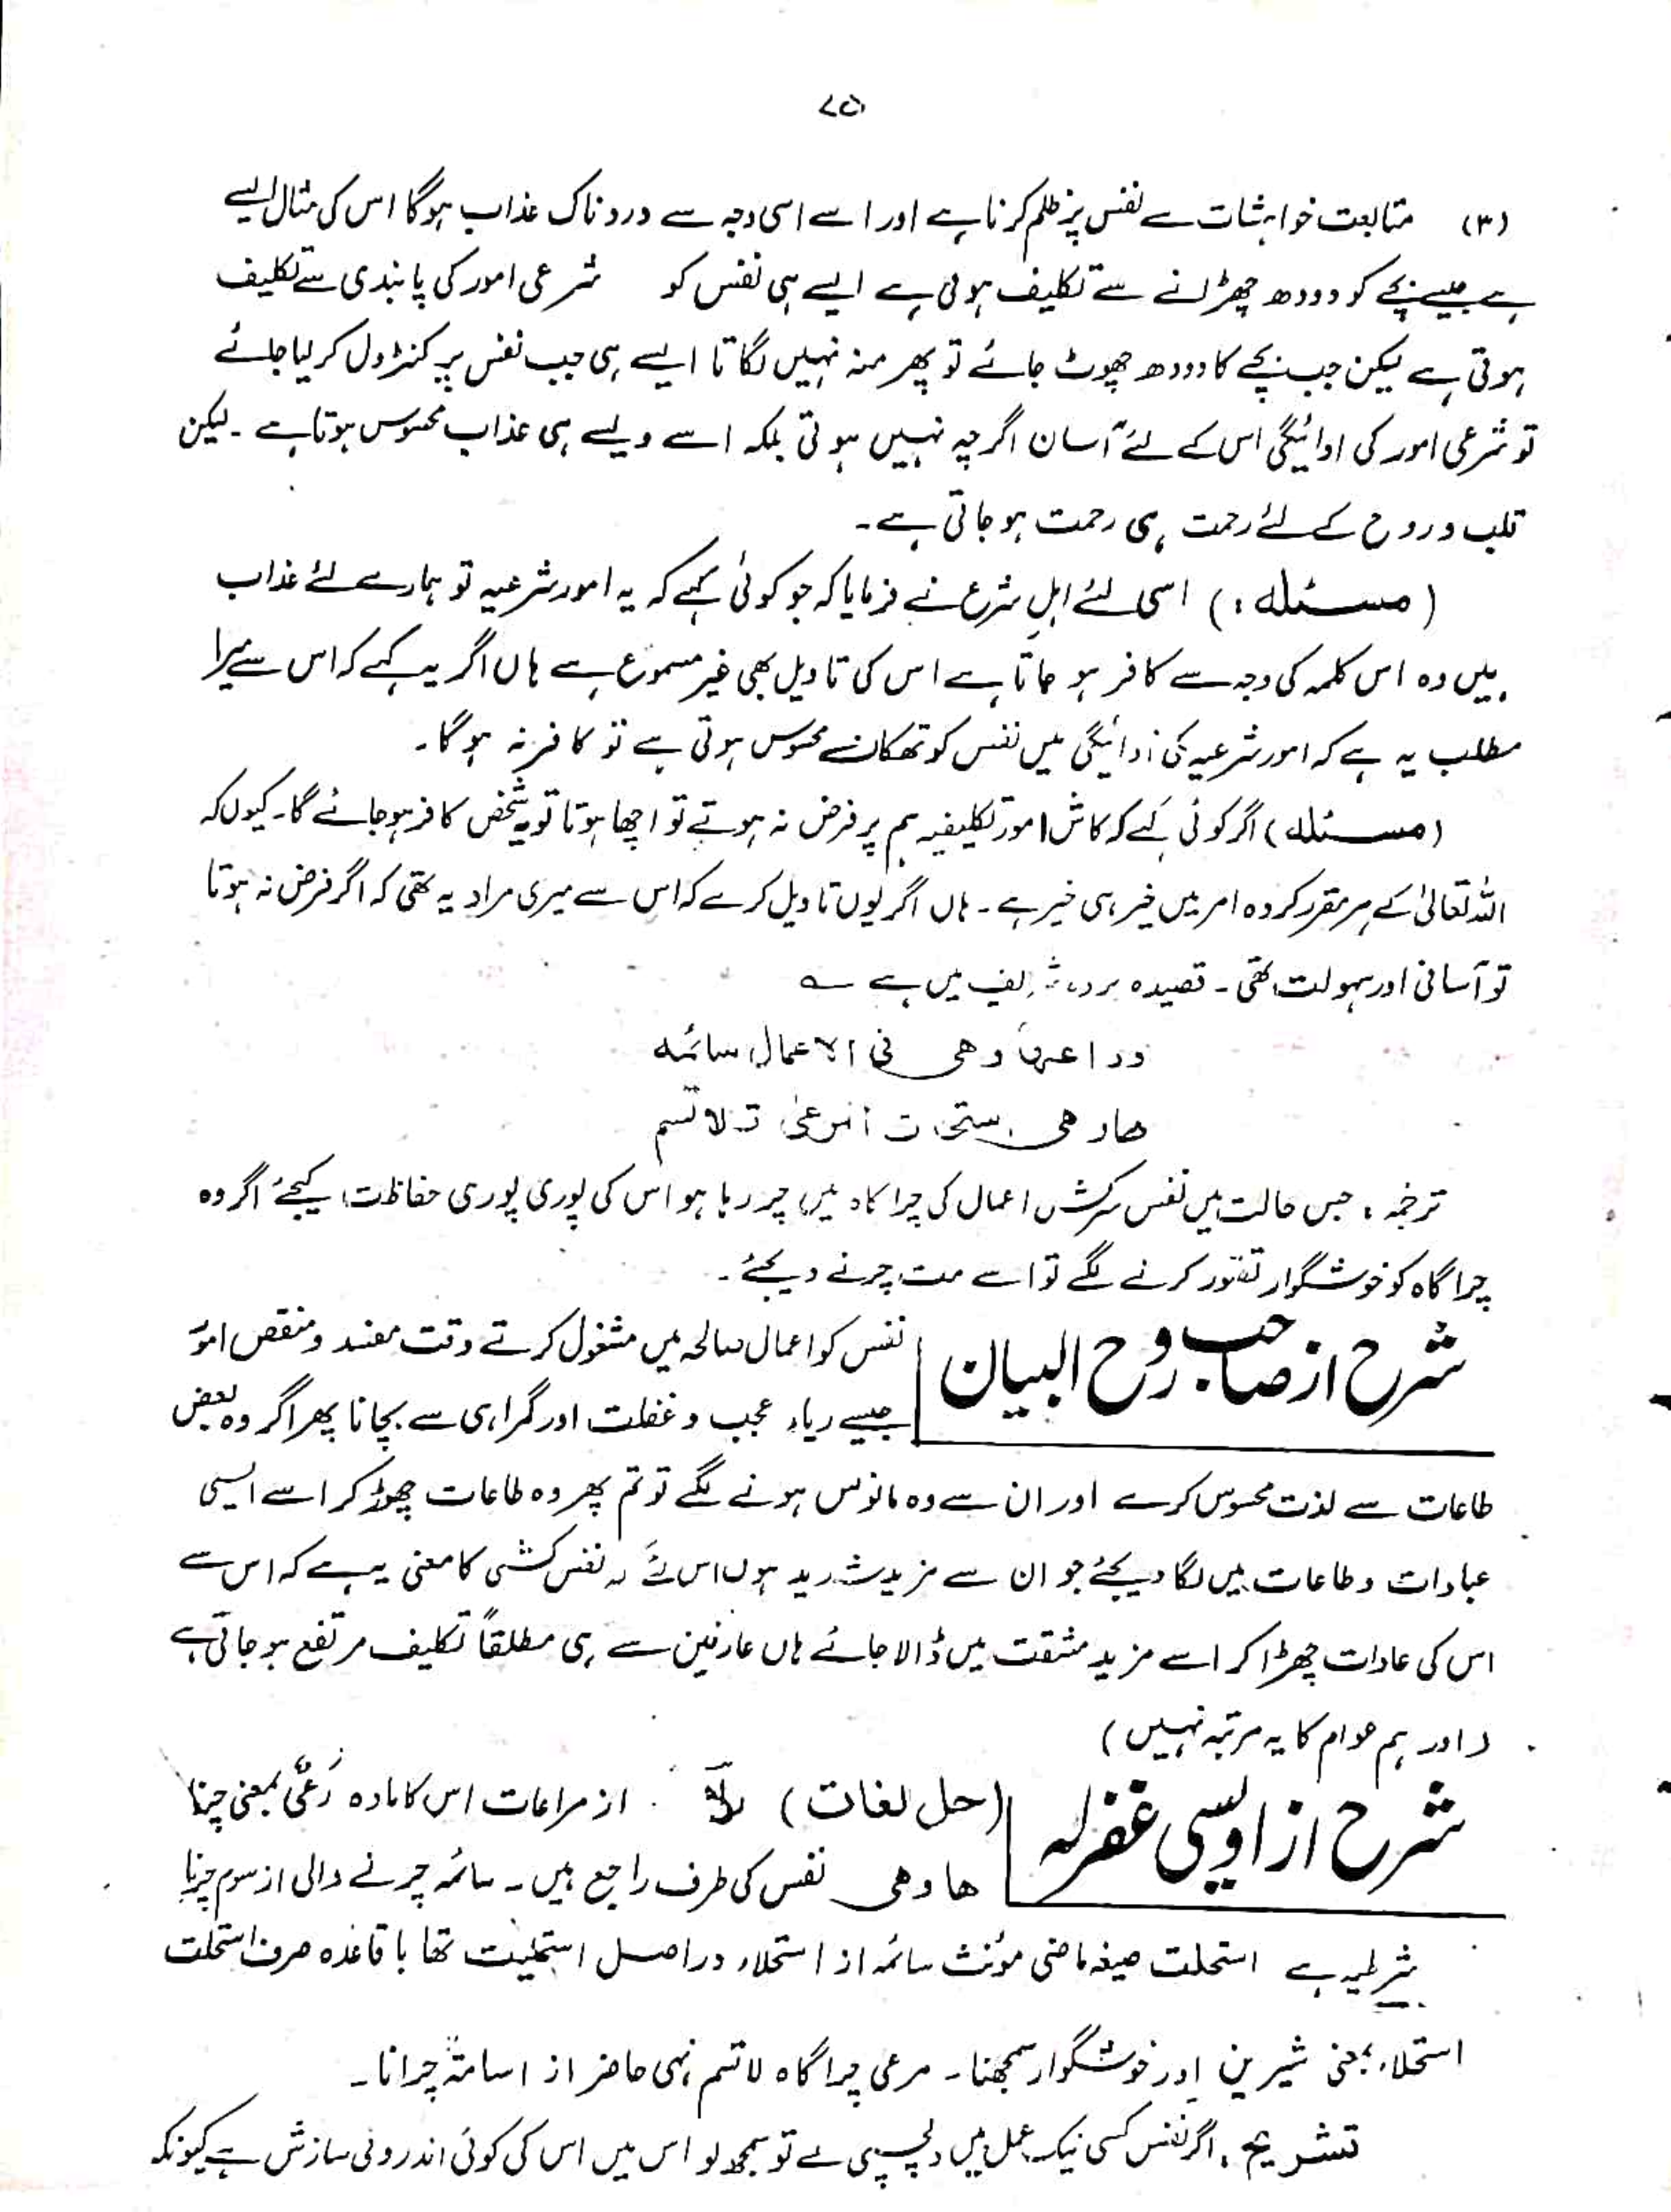 ۷۵۱
(۳) متابعت خواہشات سے نفس پر ظلم کرنا ہے اور اسے اسی وجہ سے دردناک عذاب ہوگا اس کی مثال ایسے
ہے جیسے بچے کو دودھ چھڑانے سے تکلیف ہوتی ہے ایسے ہی نفس کو شرعی امور کی پابندی سے تکلیف
ہوتی ہے لیکن جب بچے کا دودھ چھوٹ جائے تو پھر منہ نہیں لگاتا ایسے ہی جب نفس پر کنٹرول کر لیا جائے
تو شرعی امور کی ادائیگی اس کے لئے آسان اگرچہ نہیں ہوتی بلکہ اسے ویسے ہی عذاب محسوس ہوتا ہے ۔ لیکن
قلب و روح کے لئے رحمت ہی رحمت ہو جاتی ہے ۔
(مسئلہ :) اسی لئے اہلِ شرع نے فرمایا کہ جو کوئی کہے کہ یہ امور شرعیہ تو ہمارے لئے عذاب
ہیں وہ اس کلمہ کی وجہ سے کافر ہو جاتا ہے اس کی تاویل بھی غیر مسموع ہے ہاں اگر یہ کہے کہ اس سے میرا
مطلب یہ ہے کہ امور شرعیہ کی ادائیگی میں نفس کو تھکان محسوس ہوتی ہے تو کافر نہ ہوگا ۔
(مسئلہ) اگر کوئی کہے کہ کاش امور تکلیفیہ ہم پر فرض نہ ہوتے تو اچھا ہوتا تو یہ شخص کافر ہو جائے گا ۔ کیوں کہ
اللہ تعالیٰ کے ہر مقرر کردہ امر میں خیر ہی خیر ہے ۔ ہاں اگر یوں تاویل کرے کہ اس سے میری مراد یہ تھی کہ اگر فرض نہ ہوتا
تو آسانی اور سہولت تھی ۔ قصیدہ بردہ شریف میں ہے ؎
وراعها وهی فی الاعمال سائمه
هی استحلت المرعیٰ فلا تسم
ترجمہ : جس حالت میں نفس سرکش اعمال کی چراگاہ میں چر رہا ہو اس کی پوری پوری حفاظت کیجئے اگر وہ
چراگاہ کو خوشگوار تصور کرنے لگے تو اسے مت چرنے دیجئے ۔
شرح از صاحب روح البیان
نفس کو اعمال صالحہ میں مشغول کرتے وقت مفسد و منقص امور
جیسے ریاء عجب و غفلت اور گمراہی سے بچانا پھر اگر وہ بعض
طاعات سے لذت محسوس کرے اور ان سے وہ مانوس ہونے لگے تو تم پھر وہ طاعات چھوڑ کر اسے ایسی
عبادات و طاعات میں لگا دیجئے جو ان سے مزید شدید ہوں اس لئے کہ نفس کشی کا معنی یہ ہے کہ اس سے
اس کی عادات چھڑا کر اسے مزید مشقت میں ڈالا جائے ہاں عارفین سے ہی مطلقاً تکلیف مرتفع ہو جاتی ہے
(اور ہم عوام کا یہ مرتبہ نہیں)
شرح از اویسی غفرلہ
(حل لغات) از مراعات اس کا مادہ رَعیٌ بمعنی چرنا
ھا وھی نفس کی طرف راجع ہیں ۔ سائمہ چرنے والی از سوم چرنا
شرطیہ ہے استحلت صیغہ ماضی مؤنث سائمہ از استحلاء دراصل استحلیت تھا با قاعدہ صرف استحلت
استحلاء بمعنی شیریں اور خوشگوار سمجھنا ۔ مرعی چراگاہ لاتسم نہی حاضر از اسامتہ چرانا ۔
تشریح : اگر نفس کسی نیک عمل میں دلچسپی لے تو سمجھ لو اس میں اس کی کوئی اندرونی سازش ہے کیونکہ